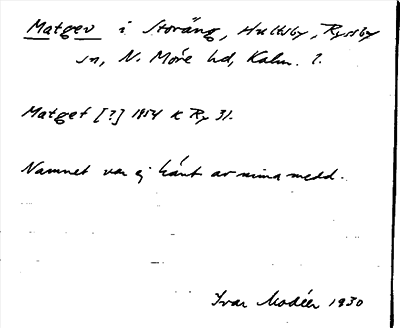 Matgev i Storäng, Hultsby, Ryssby
sn, N. Möre hd, Kalm. l.
Matget [?] 1854 k Ry 31.
Namnet var ej känt av mina medd.
Ivar Modéer 1930